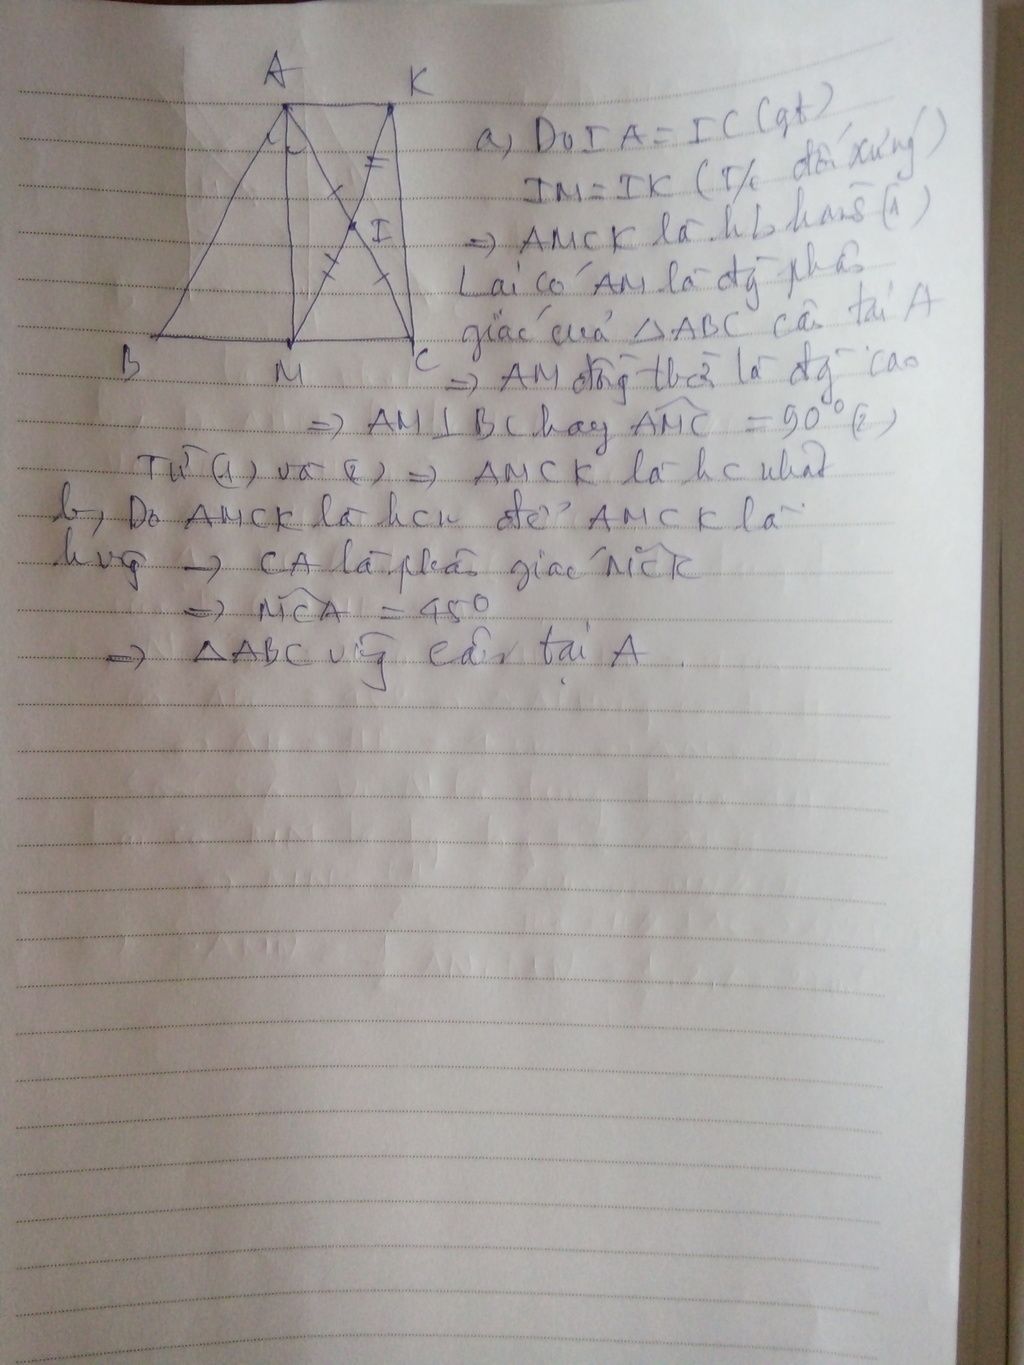 A K
I
B M C
a, Do IA = IC (gt)
IM = IK (T/c đối xứng)
=> AMCK là hb hành (1)
Lại có AM là đg phân
giác của △ABC cân tại A
=> AM đồng thời là đg cao
=> AM ⊥ BC hay AMC = 90° (2)
Từ (1) và (2) => AMCK là hc nhật
b, Do AMCK là hcn để AMCK là
hvg -> CA là phân giác MCK
=> MCA = 45°
=> △ABC vg cân tại A.